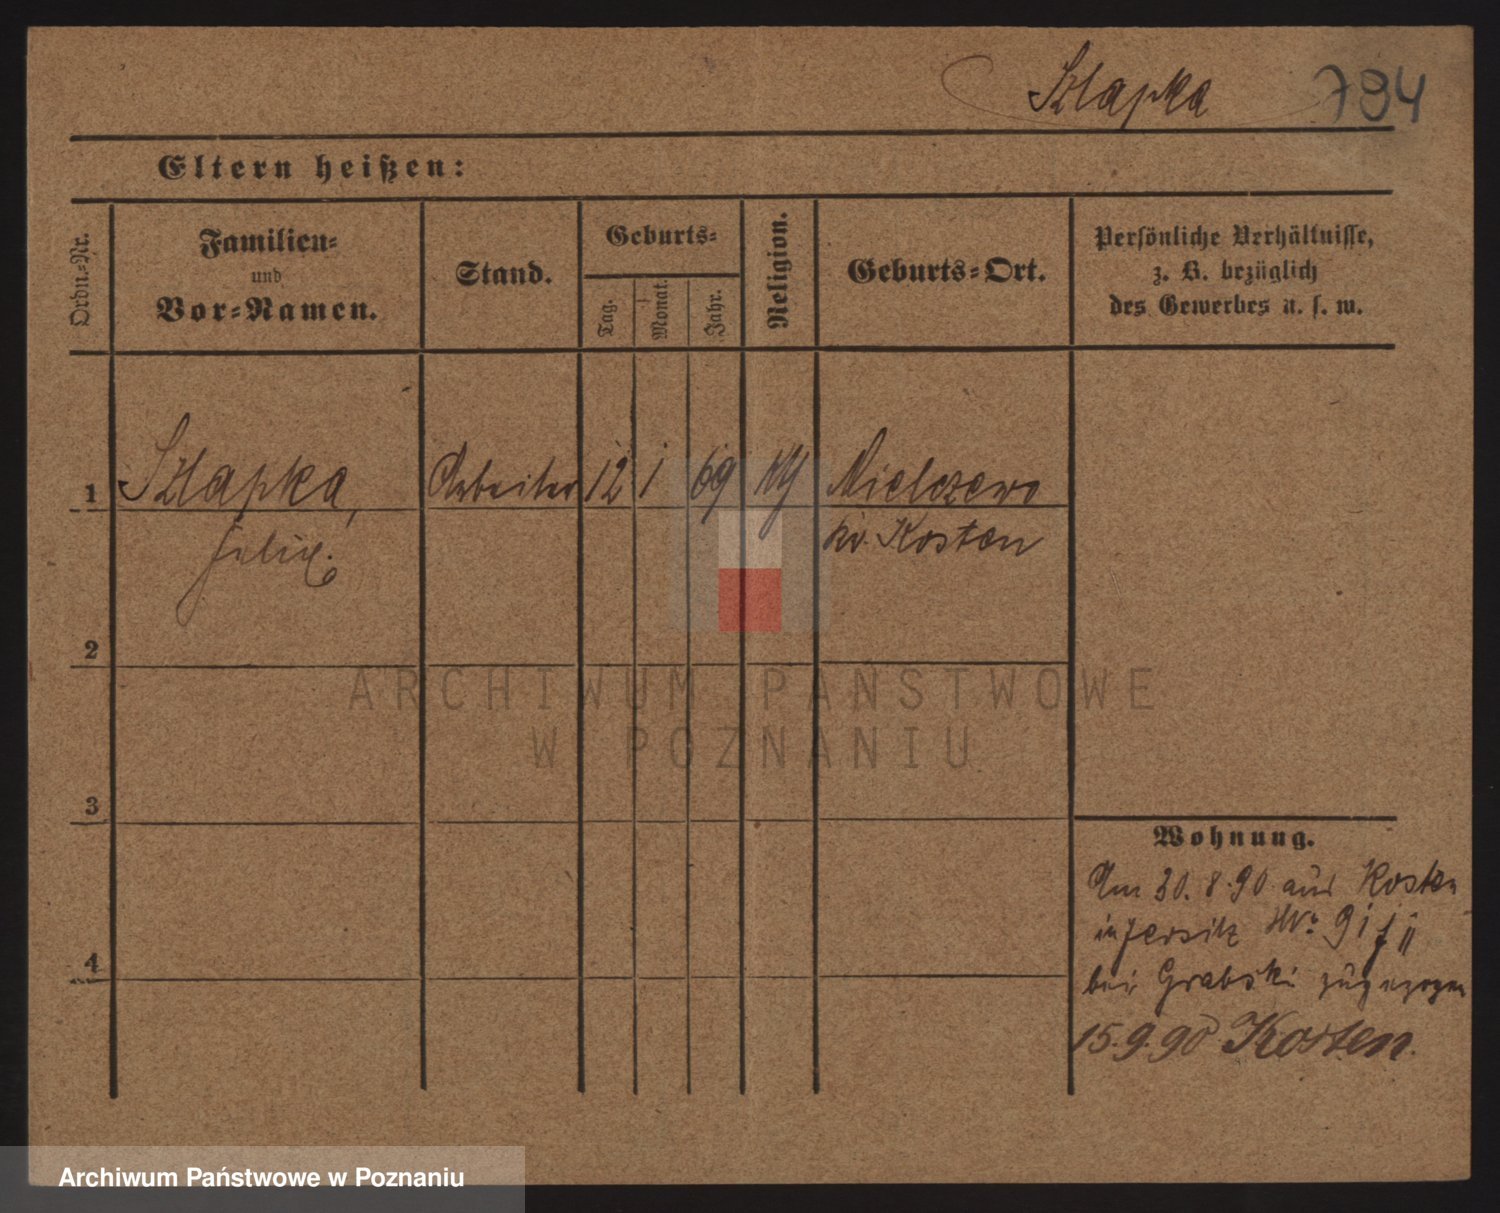 Szlapka 794
Eltern heißen:
Ordn.-Nr.
Familien-
und
Vor-Namen.
Stand.
Geburts-
Tag.
Monat.
Jahr.
Religion.
Geburts-Ort.
Persönliche Verhältnisse,
z. B. bezüglich
des Gewerbes u. s. w.
1 Szlapka, Arbeiter 12 1 69 Mielczewo
Felix. kr. Kosten
2
ARCHIWUM PAŃSTWOWE
W POZNANIU
3
Wohnung.
Am 30. 8. 90 aus Kosten
in Jersitz No. 91
4
bei Grabski zugezogen
15. 9. 90 Kosten.
Archiwum Państwowe w Poznaniu